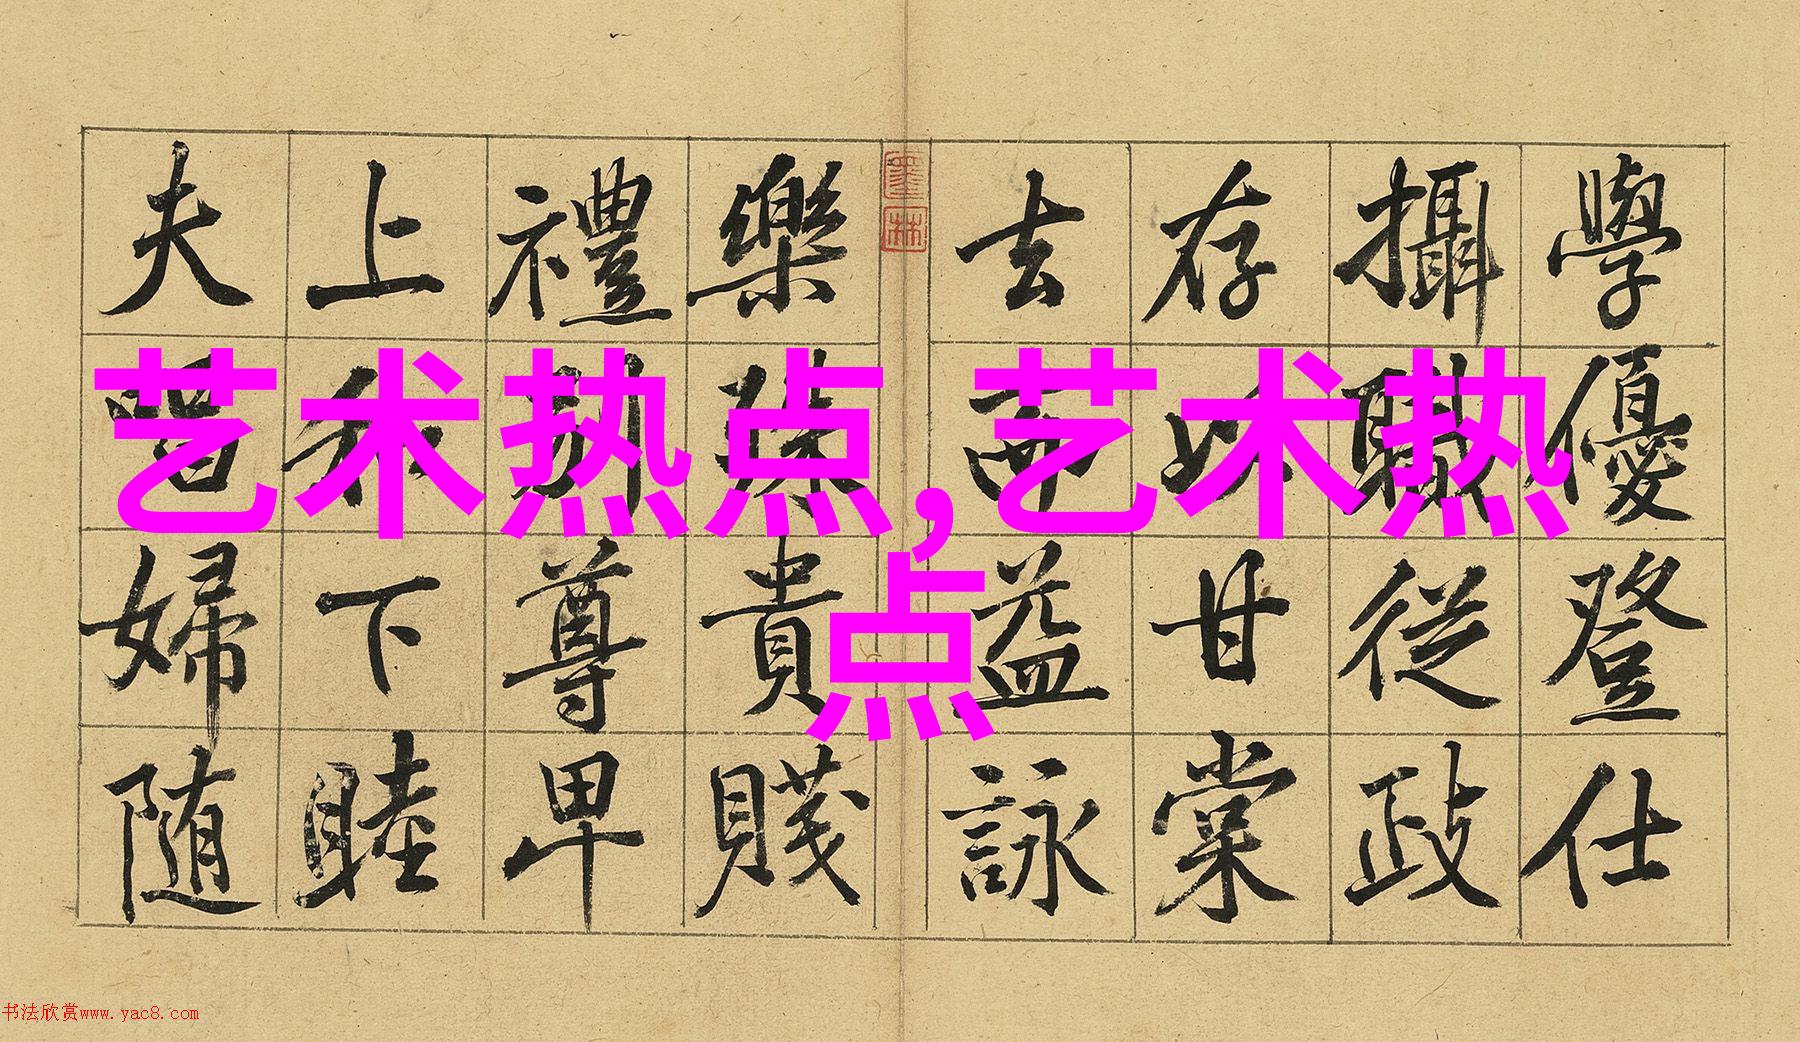 學優登仕
攝職從政
存以甘棠
去而益詠
墨林
樂殊貴賤
禮別尊卑
上和下睦
夫唱婦随
艺术热点,艺术热
点
书法欣赏www.yac8.com